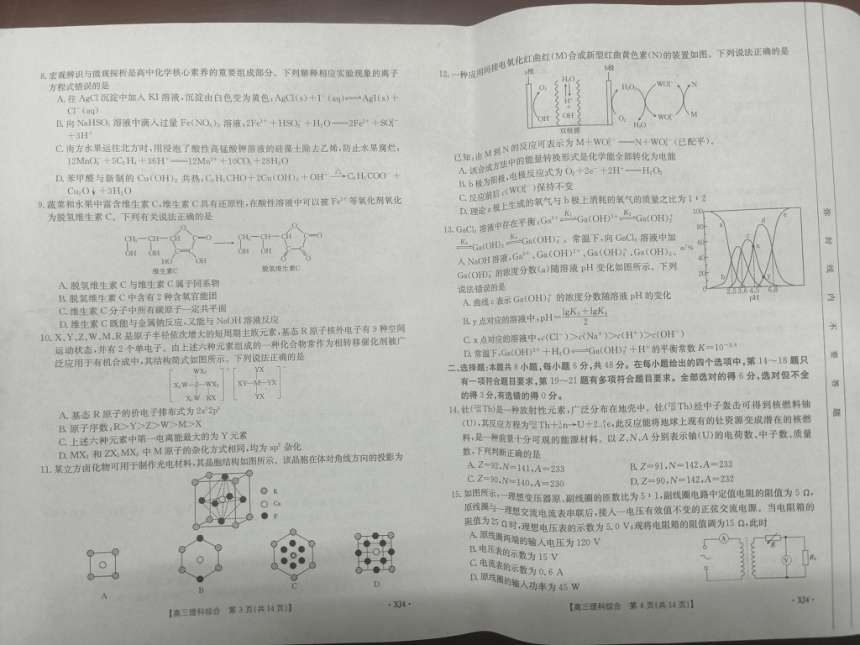 8.宏观辨识与微观探析是高中化学核心素养的重要组成部分。下列解释相应实验现象的离子
方程式错误的是
A.往AgCl沉淀中加入KI溶液,沉淀由白色变为黄色:AgCl(s)+I⁻(aq)══AgI(s)+
Cl⁻(aq)
B.向NaHSO₃溶液中滴入过量Fe(NO₃)₃溶液:2Fe³⁺+HSO₃⁻+H₂O══2Fe²⁺+SO₄²⁻
+3H⁺
C.南方水果运往北方时,用浸泡了酸性高锰酸钾溶液的硅藻土除去乙烯,防止水果腐烂:
12MnO₄⁻+5C₂H₄+36H⁺══12Mn²⁺+10CO₂+28H₂O
D.苯甲醛与新制的Cu(OH)₂共热:C₆H₅CHO+2Cu(OH)₂+OH⁻—△→C₆H₅COO⁻+
Cu₂O↓+3H₂O
9.蔬菜和水果中富含维生素C,维生素C具有还原性,在酸性溶液中可以被Fe³⁺等氧化剂氧化
为脱氢维生素C。下列有关说法正确的是
CH₂—CH—CH O O CH₂—CH—CH O O
OH OH OH OH
HO OH O O
维生素C 脱氢维生素C
A.脱氢维生素C与维生素C属于同系物
B.脱氢维生素C中含有2种含氧官能团
C.维生素C分子中所有碳原子一定共平面
D.维生素C既能与金属钠反应,又能与NaOH溶液反应
10.X、Y、Z、W、M、R是原子半径依次增大的短周期主族元素,基态R原子核外电子有9种空间
运动状态,并有2个单电子。由上述六种元素组成的一种化合物常作为相转移催化剂被广
泛应用于有机合成中,其结构简式如图所示。下列说法正确的是
WX₃ YX
X₃W—Z—WX₃ XY—M—YX
X₃W RX YX
A.基态R原子的价电子排布式为2s²2p⁴
B.原子序数:R>Y>Z>W>M>X
C.上述六种元素中第一电离能最大的为Y元素
D.MX₃和ZX₃MX₃中M原子的杂化方式相同,均为sp³杂化
11.某立方卤化物可用于制作光电材料,其晶胞结构如图所示。该晶胞在体对角线方向的投影为
K
Ca
F
A B C D
【高三理科综合 第3页(共14页)】
·XJ4·
12.一种应用间接电氧化红曲红(M)合成新型红曲黄色素(N)的装置如图。下列说法正确的是
a极 b极
O₂ H₂O H₂O₂ WO₄²⁻ N
H⁺
OH⁻ OH⁻ O₂ H₂O WO₅²⁻ M
双极膜
已知:由M到N的反应可表示为M+WO₅²⁻══N+WO₄²⁻(已配平)。
A.该合成方法中的能量转换形式是化学能全部转化为电能
B.b极为阳极,电极反应式为O₂+2e⁻+2H⁺══H₂O₂
C.反应前后c(WO₄²⁻)保持不变
D.理论a极上生成的氧气与b极上消耗的氧气的质量之比为1∶2
13.GaCl₃溶液中存在平衡:Ga³⁺⇌K₁ Ga(OH)²⁺⇌K₂ Ga(OH)₂⁺
⇌K₃ Ga(OH)₃⇌K₄ Ga(OH)₄⁻。常温下,向GaCl₃溶液中加
入NaOH溶液,Ga³⁺、Ga(OH)²⁺、Ga(OH)₂⁺、Ga(OH)₃、
Ga(OH)₄⁻的浓度分数(α)随溶液pH变化如图所示。下列
说法错误的是
100 80 60 40 20 0
α/%
a b c d e x y
2.5 3.6 4.5 6.8
pH
A.曲线c表示Ga(OH)₂⁺的浓度分数随溶液pH的变化
B.y点对应的溶液中,pH=−(lgK₂+lgK₃)/2
C.x点对应的溶液中,c(Cl⁻)>c(Na⁺)>c(H⁺)>c(OH⁻)
D.常温下,Ga(OH)²⁺+H₂O⇌Ga(OH)₂⁺+H⁺的平衡常数K=10⁻³·⁶
二、选择题:本题共8小题,每小题6分,共48分。在每小题给出的四个选项中,第14~18题只
有一项符合题目要求,第19~21题有多项符合题目要求。全部选对的得6分,选对但不全
的得3分,有选错的得0分。
14.钍(²³²₉₀Th)是一种放射性元素,广泛分布在地壳中。钍(²³²₉₀Th)经中子轰击可得到核燃料铀
(U),其反应方程为²³²₉₀Th+¹₀n→U+2⁰₋₁e,此反应能将地球上现有的钍资源变成潜在的核燃
料,是一种前景十分可观的能源材料。以Z、N、A分别表示铀(U)的电荷数、中子数、质量
数,下列判断正确的是
A.Z=92,N=141,A=233 B.Z=91,N=142,A=233
C.Z=90,N=140,A=230 D.Z=90,N=142,A=232
15.如图所示,一理想变压器原、副线圈的匝数比为5∶1,副线圈电路中定值电阻的阻值为5 Ω,
原线圈与一理想交流电流表串联后,接入一电压有效值不变的正弦交流电源。当电阻箱的
阻值为25 Ω时,理想电压表的示数为5.0 V;现将电阻箱的阻值调为15 Ω,此时
A.原线圈两端的输入电压为120 V
B.电压表的示数为15 V
C.电流表的示数为0.6 A
D.原线圈的输入功率为45 W
A R V R₀
【高三理科综合 第4页(共14页)】
·XJ4·
弥
封
线
内
不
要
答
题